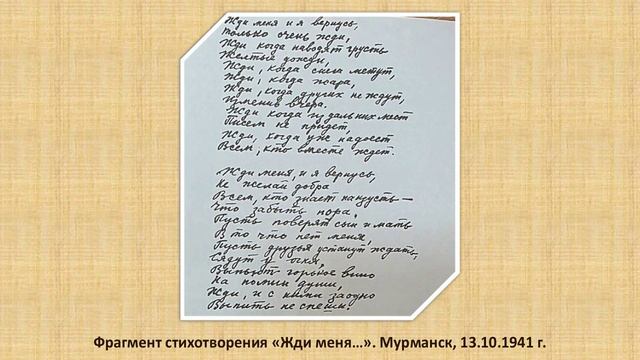 Жди меня и я вернусь,
только очень жди,
Жди когда наводят грусть
Желтые дожди,
Жди, когда снега метут,
Жди, когда жара,
Жди, когда других не ждут,
Изменив вчера.
Жди когда из дальних мест
Писем не придет,
Жди, когда уж надоест
Всем, кто вместе ждет.
Жди меня, и я вернусь,
Не желай добра
Всем, кто знает наизусть –
Что забыть пора,
Пусть поверят сын и мать
В то что нет меня,
Пусть друзья устанут ждать,
Сядут у огня,
Выпьют горькое вино
На помин души,
Жди, и с ними заодно
Выпить не спеши!
Фрагмент стихотворения «Жди меня…». Мурманск, 13.10.1941 г.